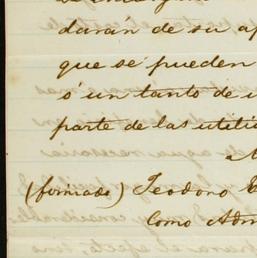 darán de su ap
que se pueden
ó un tanto de u
parte de las utili
(firmado) Teodoro
Como Adm